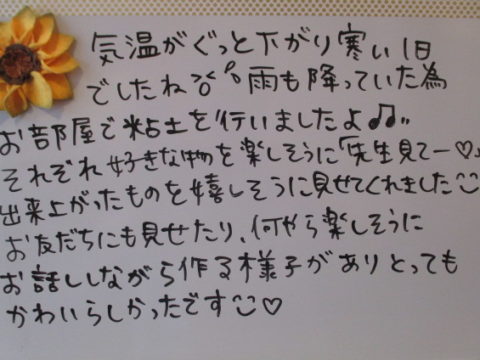 気温がぐっと下がり寒い1日
でしたね 雨も降っていた為
お部屋で粘土を行いましたよ♫
それぞれ好きな物を楽しそうに「先生見てー♡」
出来上がったものを嬉しそうに見せてくれました
お友だちにも見せたり、何やら楽しそうに
お話ししながら作る様子がありとっても
かわいらしかったです♡